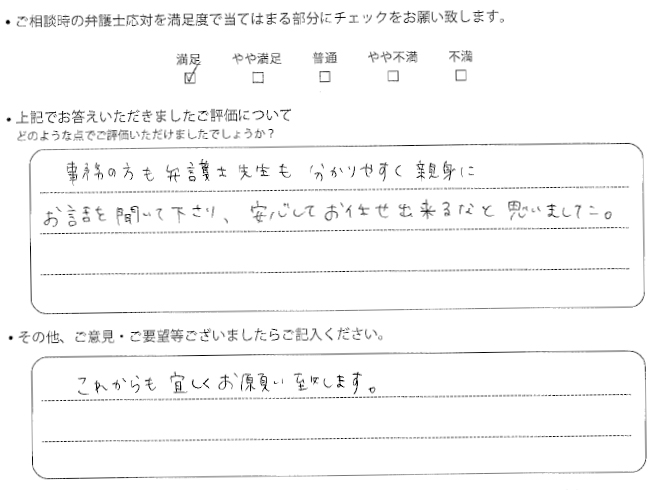 • ご相談時の弁護士応対を満足度で当てはまる部分にチェックをお願い致します。
満足 やや満足 普通 やや不満 不満
☑ □ □ □ □
• 上記でお答えいただきましたご評価について
どのような点でご評価いただけましたでしょうか？
事務の方も弁護士先生も 分かりやすく親身に
お話を聞いて下さり、安心してお任せ出来るなと思いました。
• その他、ご意見・ご要望等ございましたらご記入ください。
これからも宜しくお願い致します。